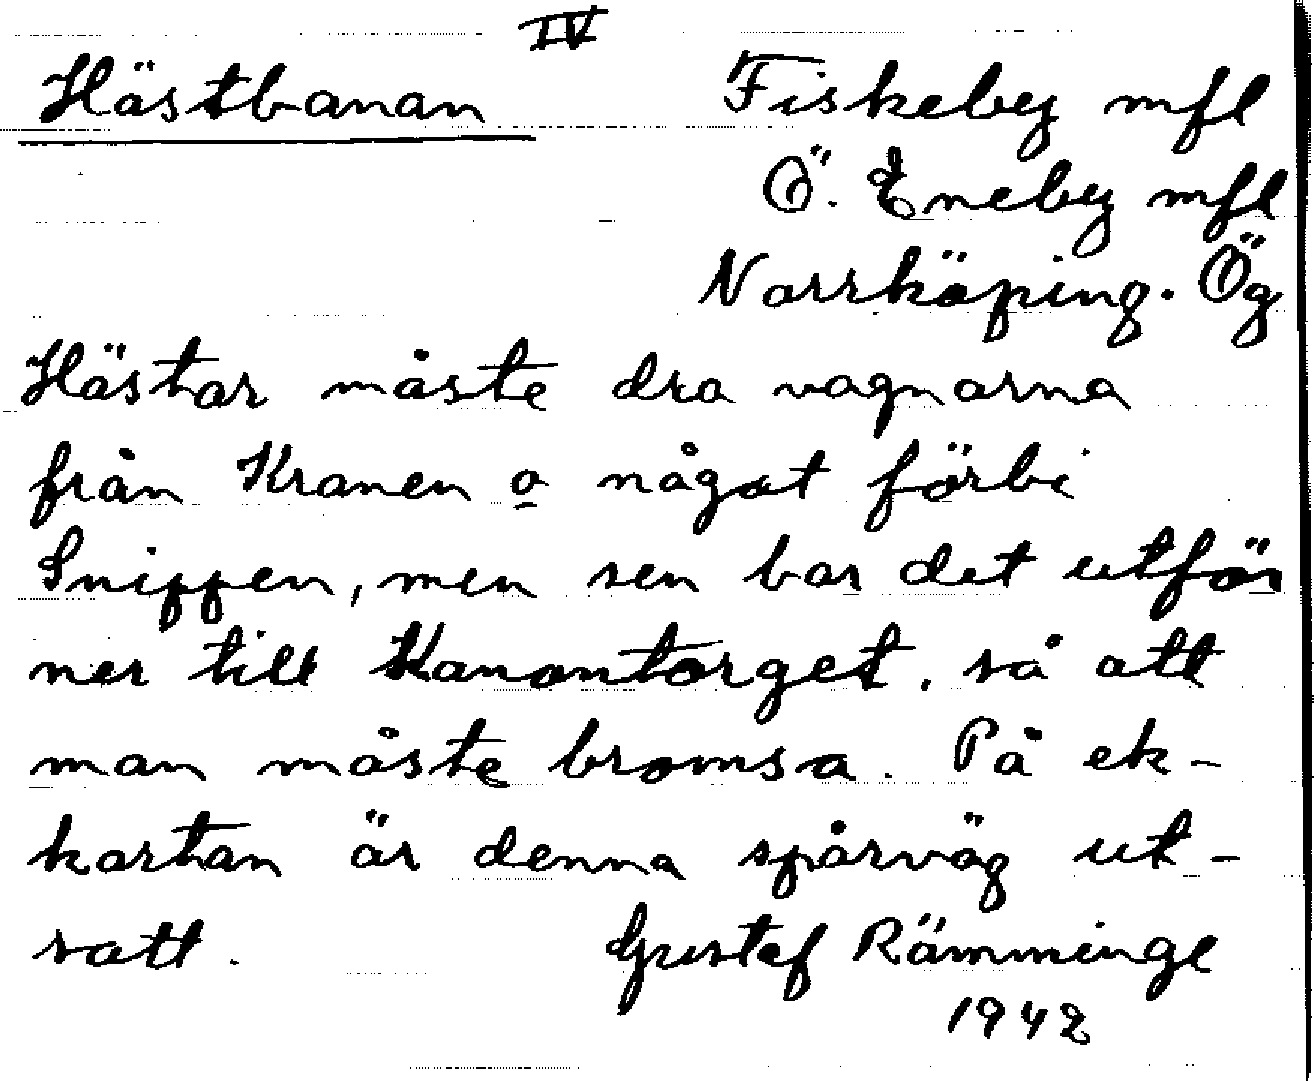 IV
Hästbanan Fiskeby mfl
Ö. Eneby mfl
Norrköping. Ög
Hästar måste dra vagnarna
från Kranen o något förbi
Snippen, men sen bar det utför
ner till Kanontorget, så att
man måste bromsa. På ek-
kartan är denna spårväg ut-
satt. Gustaf Rämminge
1942